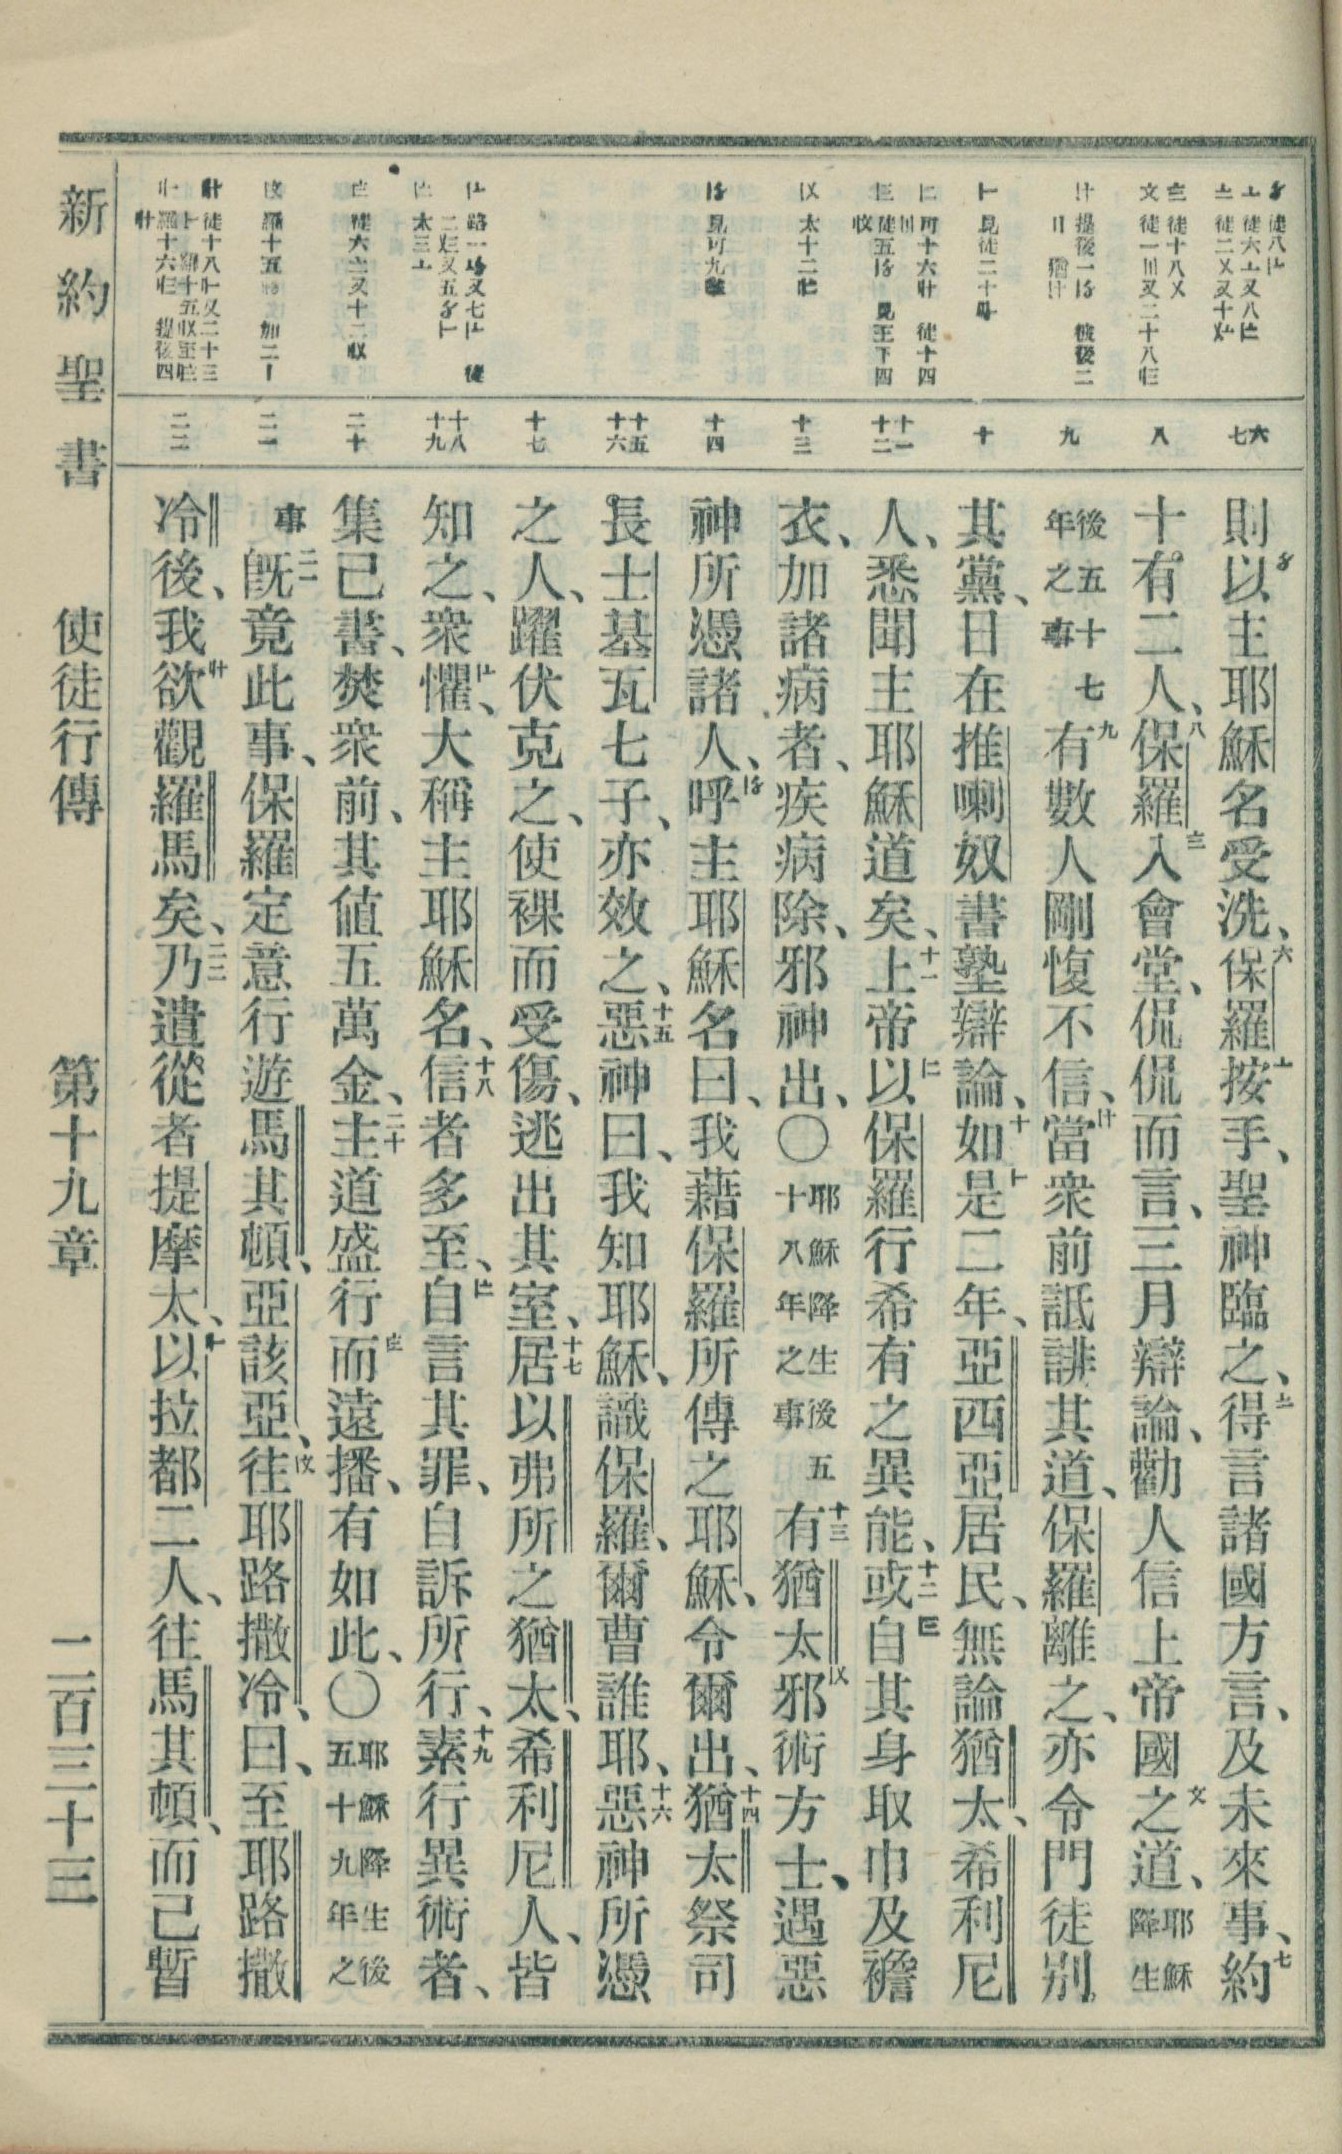 六七
八
九
十
十一十二
十三
十四
十五十六
十七
十八十九
二十
二一
二二
則以主耶穌名受洗、六保羅按手、聖神臨之、得言諸國方言、及未來事、七約
十有二人、八保羅入會堂、侃侃而言、三月辯論、勸人信上帝國之道、耶穌降生
後五十七年之事九有數人剛愎不信、當衆前詆誹其道、保羅離之、亦令門徒別
其黨、日在推喇奴書塾辯論、十如是二年、亞西亞居民、無論猶太、希利尼
人、悉聞主耶穌道矣、十一上帝以保羅行希有之異能、十二或自其身取巾及襜
衣、加諸病者、疾病除、邪神出、〇耶穌降生後五十八年之事十三有猶太邪術方士、遇惡
神所憑諸人、呼主耶穌名曰、我藉保羅所傳之耶穌、令爾出、十四猶太祭司
長士基瓦七子、亦效之、十五惡神曰、我知耶穌、識保羅、爾曹誰耶、十六惡神所憑
之人、躍伏克之、使裸而受傷、逃出其室、十七居以弗所之猶太、希利尼人、皆
知之、衆懼、大稱主耶穌名、十八信者多至、自言其罪、自訴所行、十九素行異術者、
集己書、焚衆前、其値五萬金、二十主道盛行而遠播、有如此、〇耶穌降生後五十九年之
事二一旣竟此事、保羅定意行遊馬其頓、亞該亞、往耶路撒冷、曰、至耶路撒
冷後、我欲觀羅馬矣、二二乃遣從者提摩太、以拉都二人、往馬其頓、而己暫
新約聖書 使徒行傳 第十九章 二百三十三